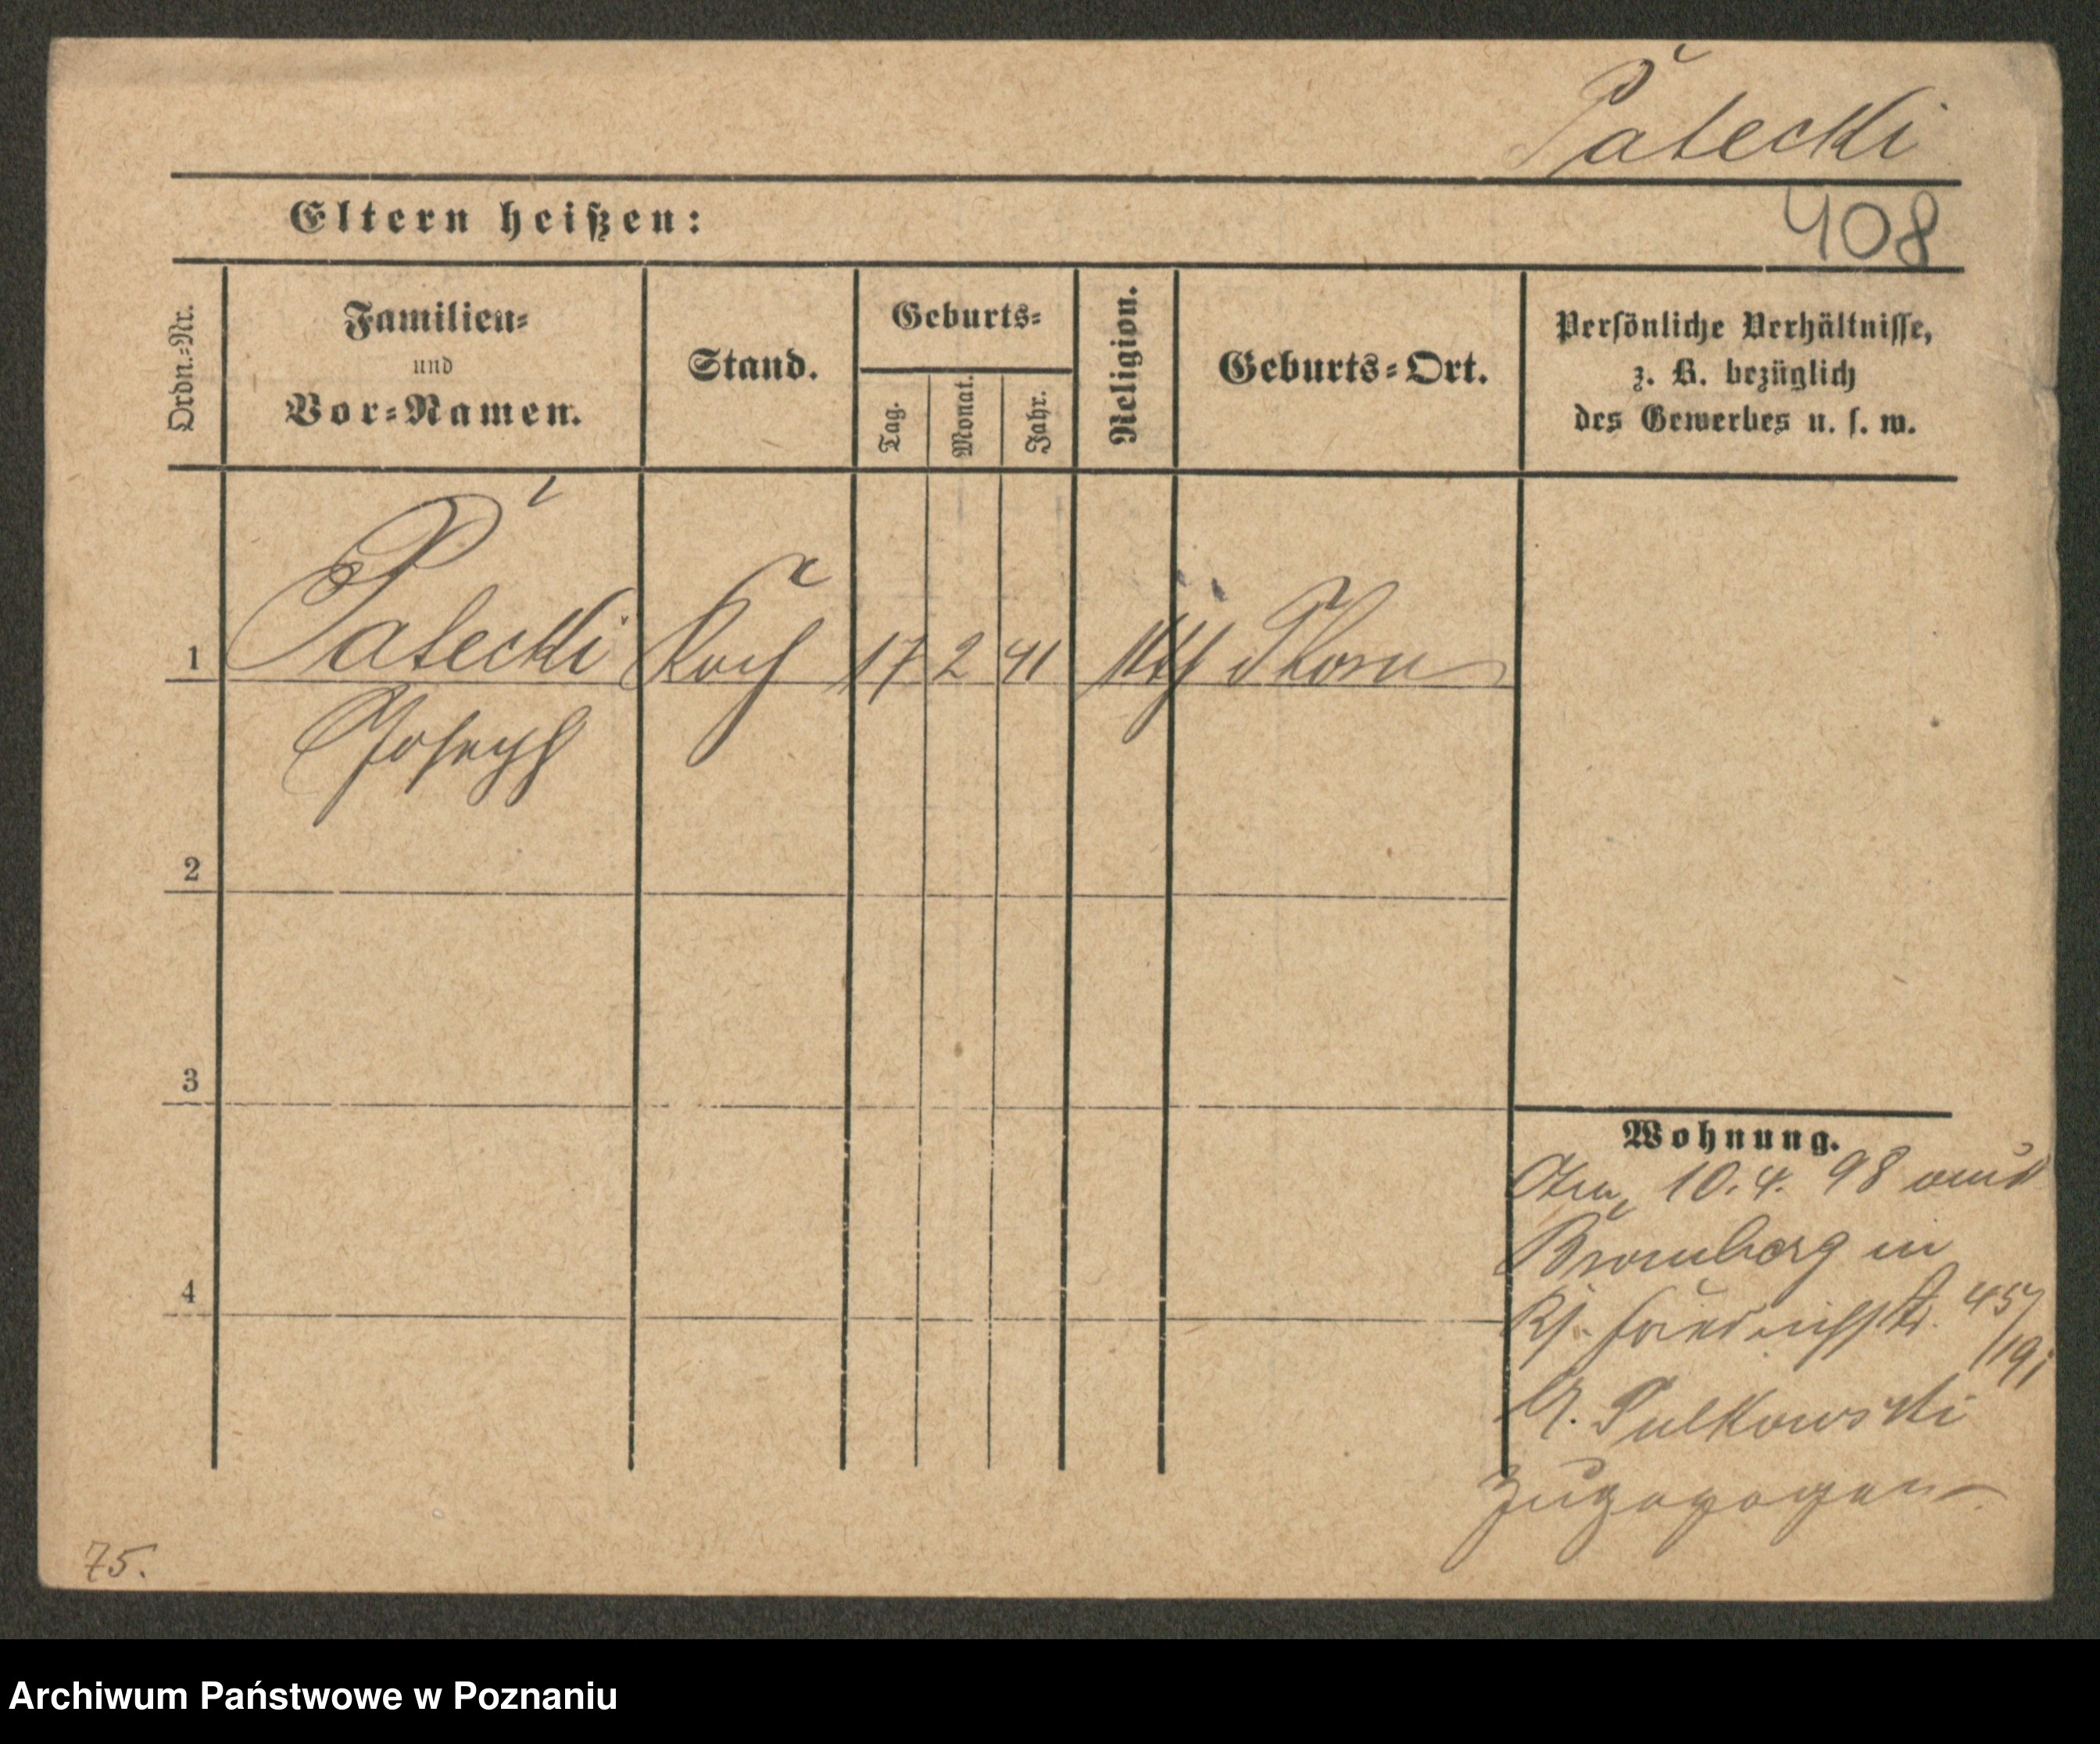 Patecki
Eltern heißen:
408
Ordn.-Nr.
Familien-
und
Vor-Namen.
Stand.
Geburts-
Tag.
Monat.
Jahr.
Religion.
Geburts-Ort.
Persönliche Verhältnisse,
z. B. bezüglich
des Gewerbes u. s. w.
1 Patecki Koch 17 2 41 kth Thorn
Joseph
2
3
4
Wohnung.
Am 10. 4. 98 aus
Bromberg in
Friedrichstr. 45
19
Pulkowski
zugezogen
75.
Archiwum Państwowe w Poznaniu